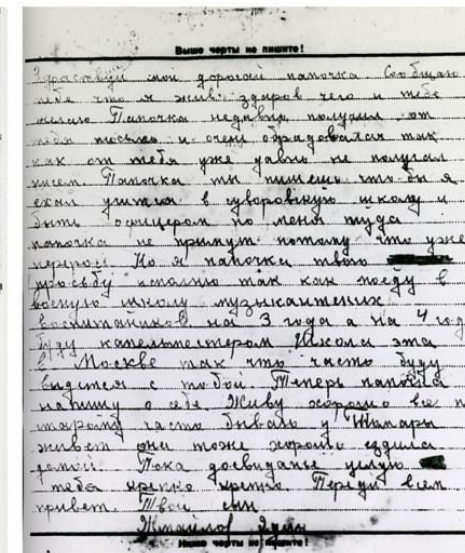 Выше черты не пишите!
Здраствуй мой дорогой папочка Сообщаю
тебе что я жив здоров чего и тебе
желаю Папочка недавно получил от
тебя письмо и очень обрадовался так
как от тебя уже давно не получал
писем. Папочка ты пишешь что бы я
ехал учится в суворовскую школу и
быть офицером но меня туда
папочка не примут потому что уже
перерос. Но я папочка твою
просьбу исполню так как поеду в
военую школу музыкантских
воспитаников на 3 года а на 4 год
буду капельмейстером Школа эта
в Москве так что часто буду
видется с тобой. Теперь папочка
напишу о себе. Живу хорошо все п
старому часто бываю у Тамары
живет она тоже хорошо ездила
домой. Пока досвиданье целую
тебя крепко крепко. Передай всем
привет. Твой сын
Ниже черты не пишите!